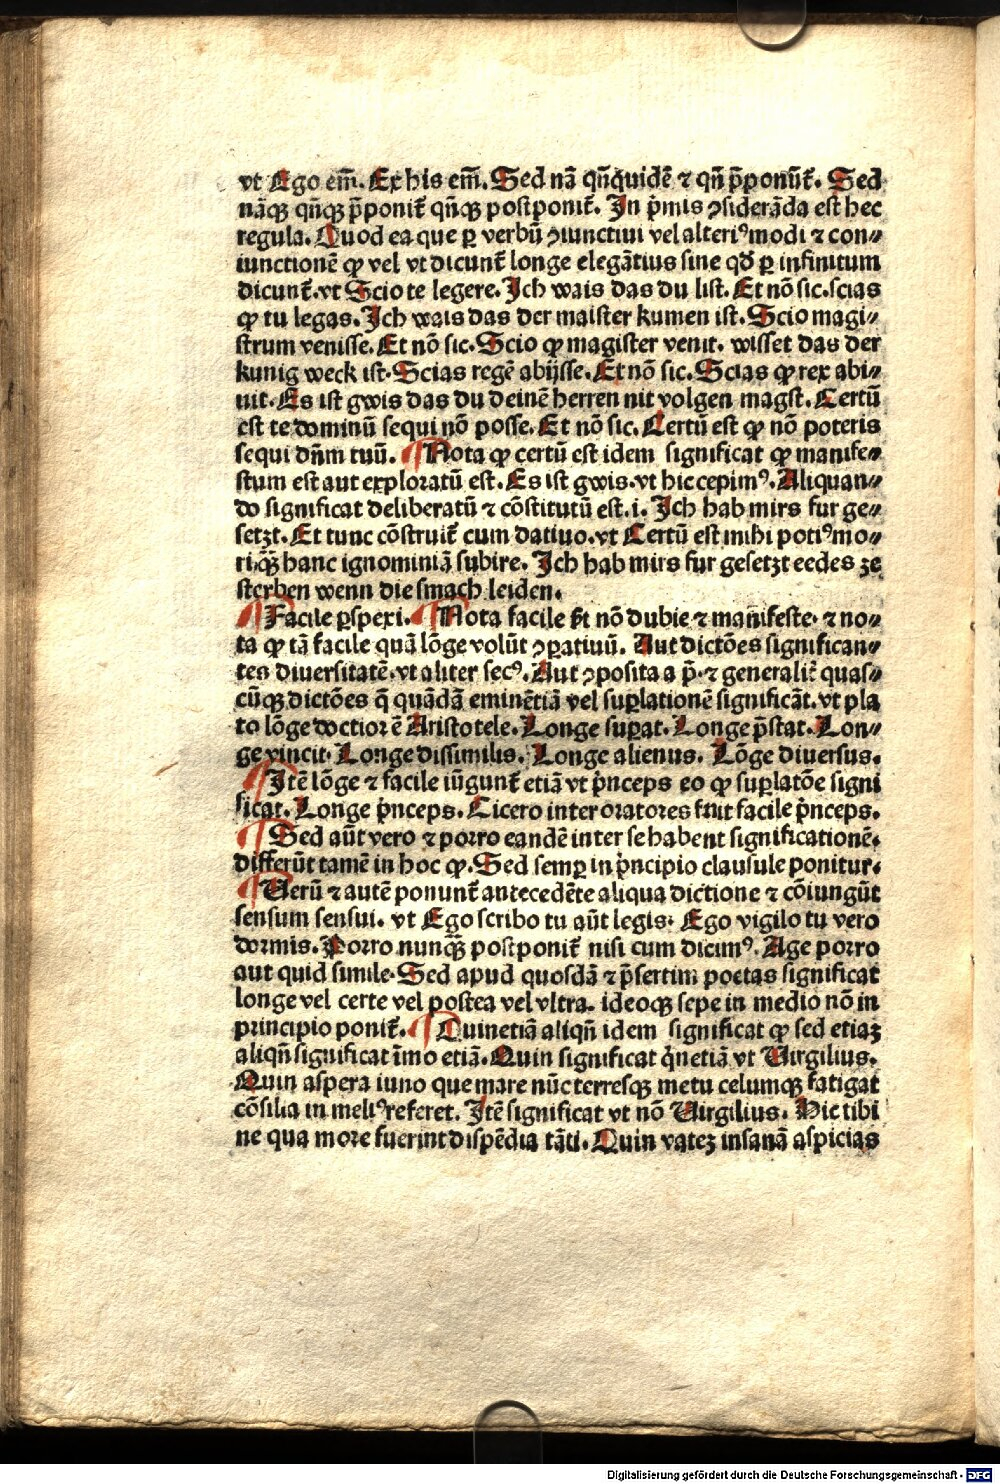 vt Ego em̄. Ex his em̄. Sed nā qn̄quidē ⁊ qn̄ p̄ponūt᷑. Sed
nāqꝫ qn̄qꝫ p̄ponit᷑ qn̄qꝫ postponit᷑. In p̄mis ꝯsiderāda est hec
regula. Quod ea que ꝑ verbū ꝯiunctiui vel alteriꝰ modi ⁊ con⸗
iunctionē ꝙ vel vt dicunt᷑ longe elegātius sine qd̄ ꝑ infinitum
dicunt᷑. vt Scio te legere. Ich wais das du list. Et nō sic. scias
ꝙ tu legas. Ich wais das der maister kumen ist. Scio magi⸗
strum venisse. Et nō sic. Scio ꝙ magister venit. wisset das der
kunig weck ist. Scias regē abijsse. Et nō sic. Scias ꝙ rex abi⸗
uit. Es ist gwis das du deinē herren nit volgen magst. Certū
est te dominū sequi nō posse. Et nō sic. Certū est ꝙ nō poteris
sequi dn̄m tuū. Nota ꝙ certū est idem significat ꝙ manife⸗
stum est aut exploratū est. Es ist gwis. vt hic cepimꝰ. Aliquan⸗
do significat deliberatū ⁊ cōstitutū est. i. Ich hab mirs fur ge⸗
setzt. Et tunc cōstruit᷑ cum datiuo. vt Certū est mihi potiꝰ mo⸗
ri qꝫ̄ hanc ignominiā subire. Ich hab mirs fur gesetzt eedes ze
sterben wenn die smach leiden.
Facile ꝑspexi. Nota facile fit nō dubie ⁊ manifeste. ⁊ no⸗
ta ꝙ tā facile quā lōge volūt ꝯparatiuū. Aut dictōes significan⸗
tes diuersitatē. vt aliter secꝰ. Aut ꝯposita a p̄. ⁊ generalit᷑ quas⸗
cūqꝫ dictōes q̄ quādā eminētiā vel suꝑlationē significāt. vt pla
to lōge doctior ē Aristotele. Longe suꝑat. Longe p̄stat. Lon⸗
ge vincit. Longe dissimilis. Longe alienus. Lōge diuersus.
Itē lōge ⁊ facile iūgunt᷑ etiā vt p̄nceps eo ꝙ suꝑlatōe signi
ficat. Longe p̄nceps. Cicero inter oratores fuit facile p̄nceps.
Sed aūt vero ⁊ porro eandē inter se habent significationē.
differūt tamē in hoc ꝙ. Sed semꝑ in p̄ncipio clausule ponitur.
Uerū ⁊ autē ponunt᷑ antecedēte aliqua dictione ⁊ cōiungūt
sensum sensui. vt Ego scribo tu aūt legis. Ego vigilo tu vero
dormis. Porro nunqꝫ̄ postponit᷑ nisi cum dicimꝰ. Age porro
aut quid simile. Sed apud quosdā ⁊ p̄sertim poetas significat
longe vel certe vel postea vel vltra. ideoqꝫ sepe in medio nō in
principio ponit᷑. Quinetiā aliqn̄ idem significat ꝙ sed etiaꝫ
aliqn̄ significat īmo etiā. Quin significat q̇netiā vt Uirgilius.
Quin aspera iuno que mare nūc terresqꝫ metu celumqꝫ fatigat
cōsilia in meliꝰ referet. Itē significat vt nō Uirgilius. Hic tibi
ne qua more fuerint dispēdia tāti. Quin vateꝫ insanā aspicias
Digitalisierung gefördert durch die Deutsche Forschungsgemeinschaft - DFG